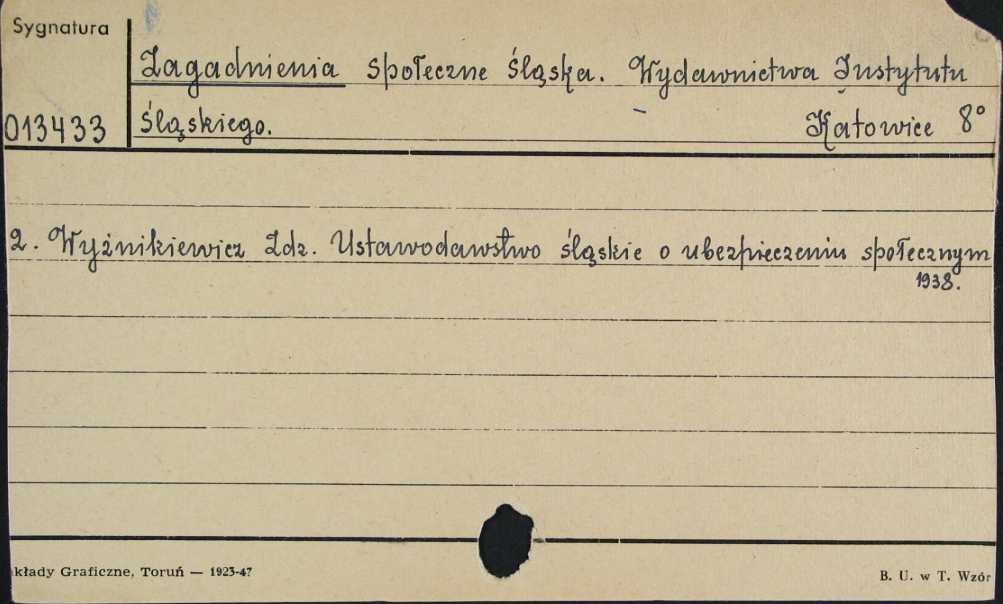 Sygnatura
Zagadnienia społeczne śląska. Wydawnictwa Instytutu
013433 śląskiego. Katowice 8°
2. Wyżnikiewicz Zdz. Ustawodawstwo śląskie o ubezpieczeniu społecznym
1938.
kłady Graficzne, Toruń — 1923-47
B. U. w T. Wzór